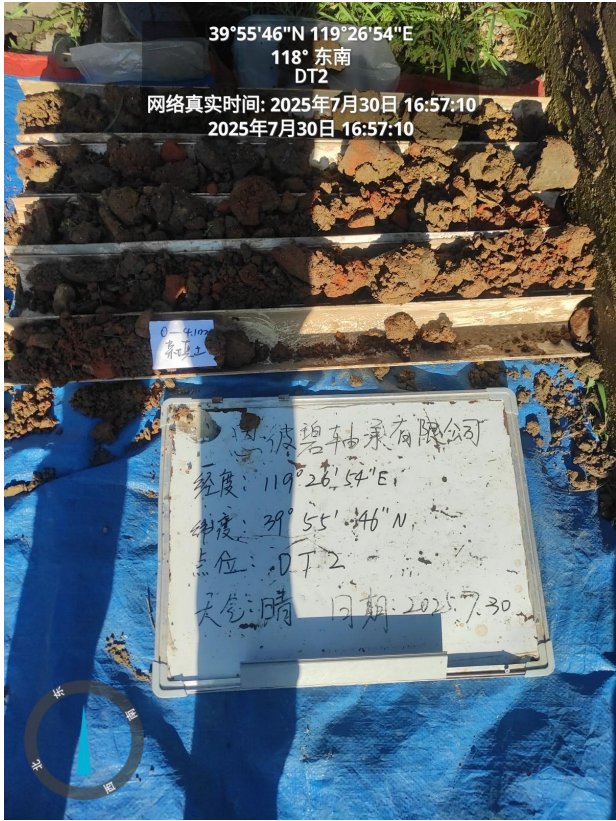 39°55'46"N 119°26'54"E
118° 东南
DT2
网络真实时间: 2025年7月30日 16:57:10
2025年7月30日 16:57:10
0—4.1m
素填土
波碧轴承有限公司
经度: 119°26'54"E
纬度: 39°55'46"N
点位: DT2
天气: 晴 日期: 2025.7.30
东
南
北
西